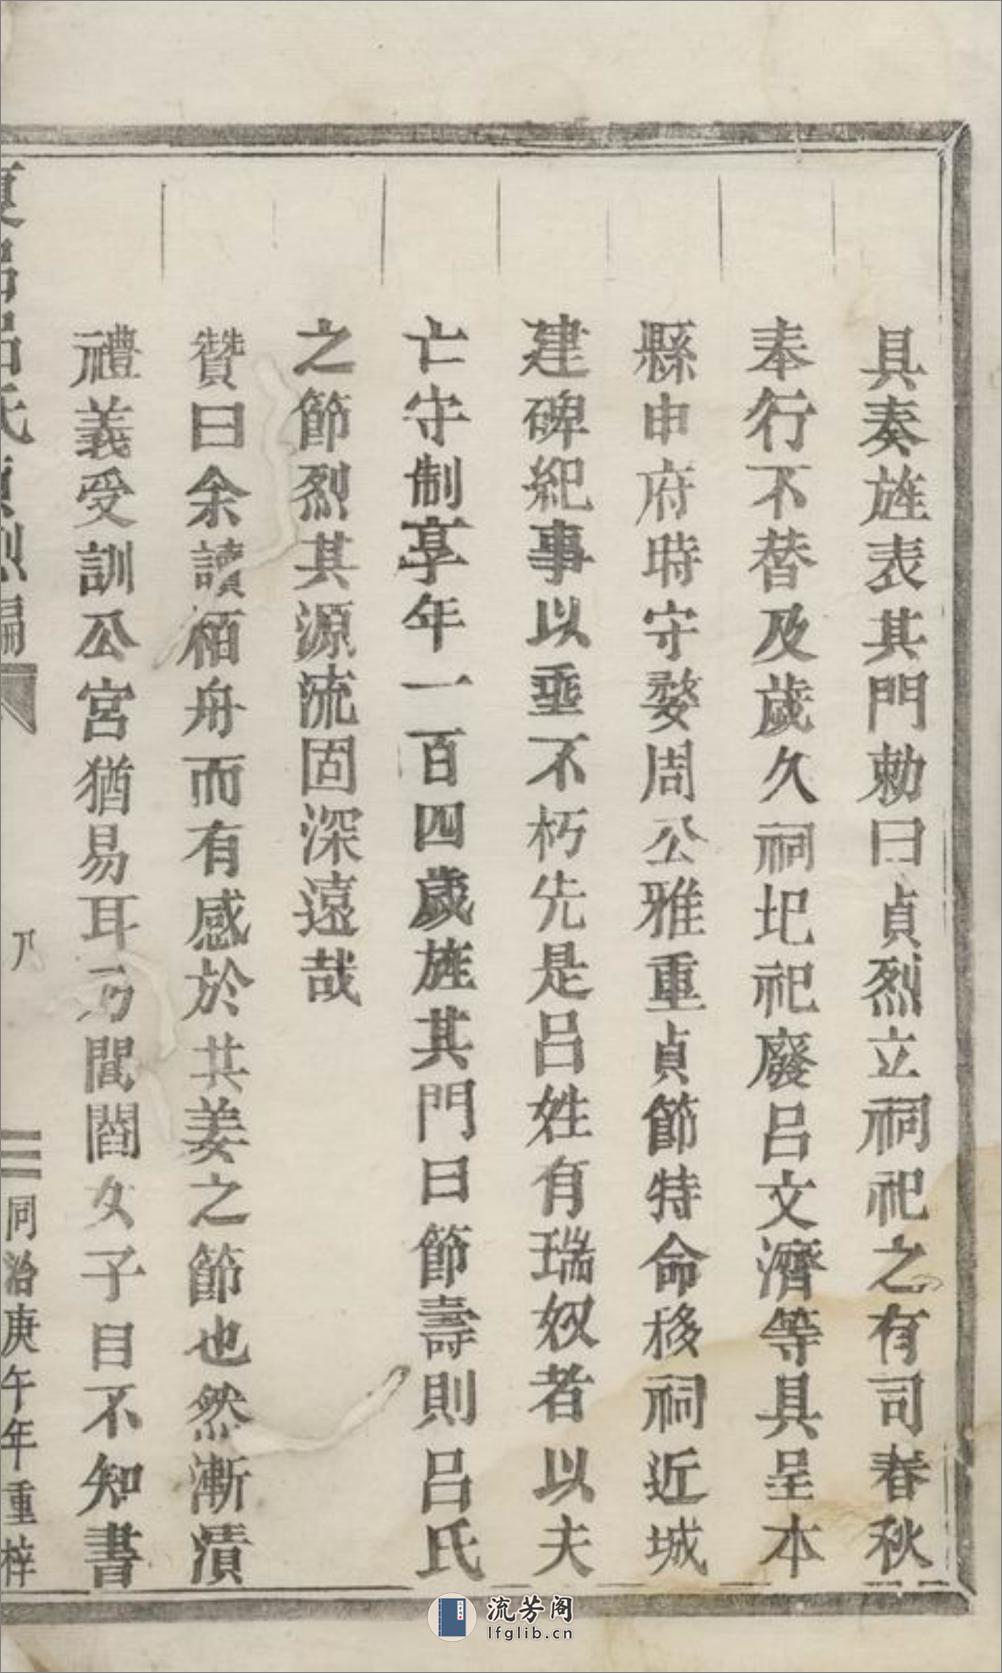 具奏旌表其門勅曰貞烈立祠祀之有司春秋
奉行不替及歲久祠圯祀廢呂文濟等具呈本
縣申府時守婺周公雅重貞節特命移祠近城
建碑紀事以垂不朽先是呂姓有瑞奴者以夫
亡守制享年一百四歲旌其門曰節壽則呂氏
之節烈其源流固深遠哉
贊曰余讀栢舟而有感於共姜之節也然漸漬
禮義受訓公宮猶易耳乃閭閻女子目不知書
呂氏貞烈編
同治庚午年重梓
流芳阁
lfglib.cn